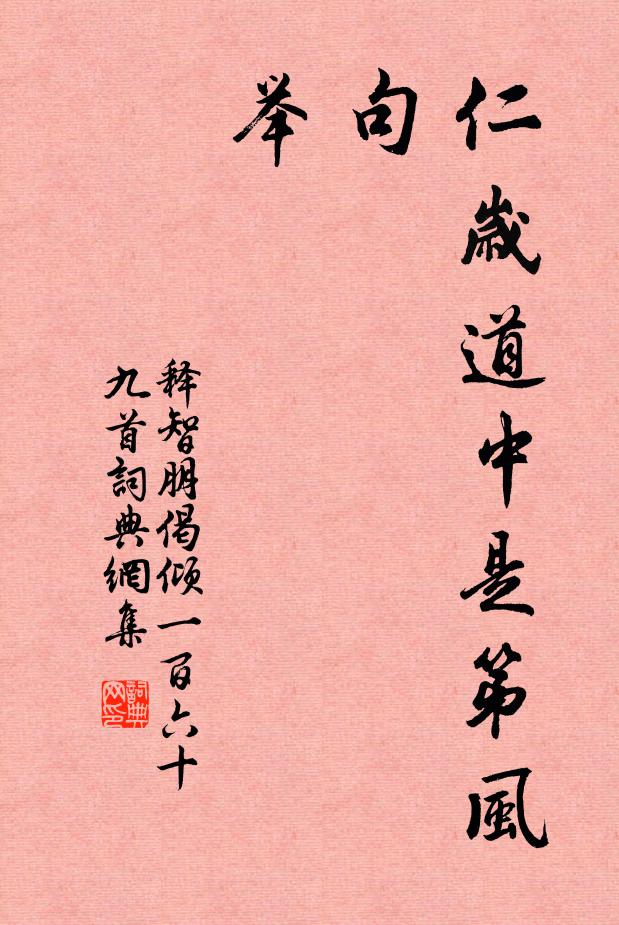 仁歲道中是第風
句
举
释智朋偈倾一百六十
九首詞典網集
詞典网印